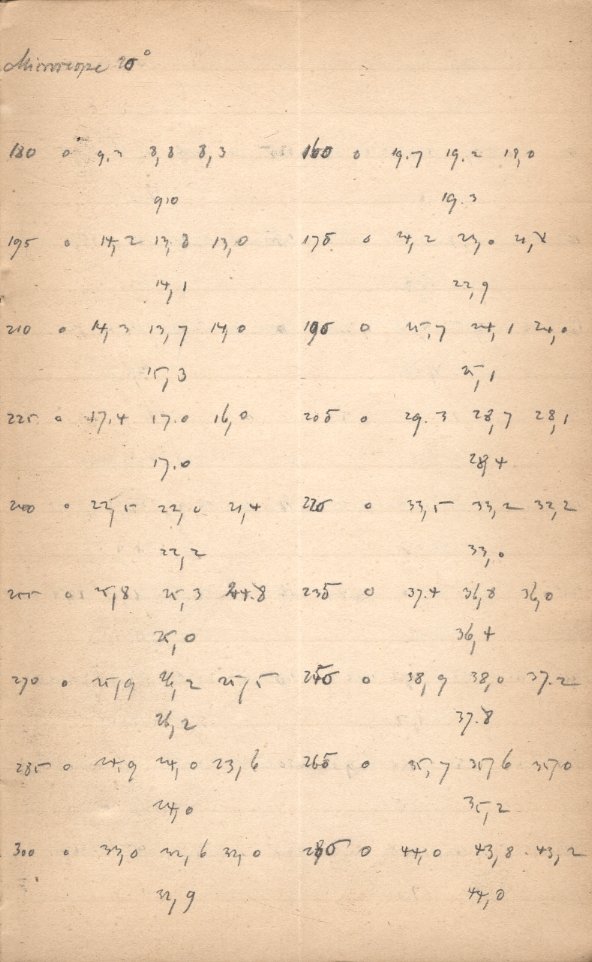 Microscope
180 0 9.3 8,8 8,3 160 0 19.7 19.2 18,0
9,0 19.3
195 0 14,2 13,8 13,0 175 0 24,2 23,0
14,1 22,9
210 0 14,3 13,7 14,0 0 190 0 25,7 24,1 24,0
15,3 25,1
225 0 17.4 17.0 16,0 205 0 29.3 28,7 28,1
17.0 28,4
0 22,5 22,0 21,4 220 0 33,5 33,2 32,2
22,2 33,0
255 0 25,8 25,3 24.8 235 0 37.4 36,8 36,0
25,0 36,4
270 0 25,9 26,2 25,5 250 0 38,9 38,0 37.2
26,2 37.8
285 0 24,9 24,0 23,6 265 0 35,7 35,6 35,0
24,0 35,2
300 0 33,0 32,6 32,0 280 0 44,0 43,8 43,2
32,9 44,0